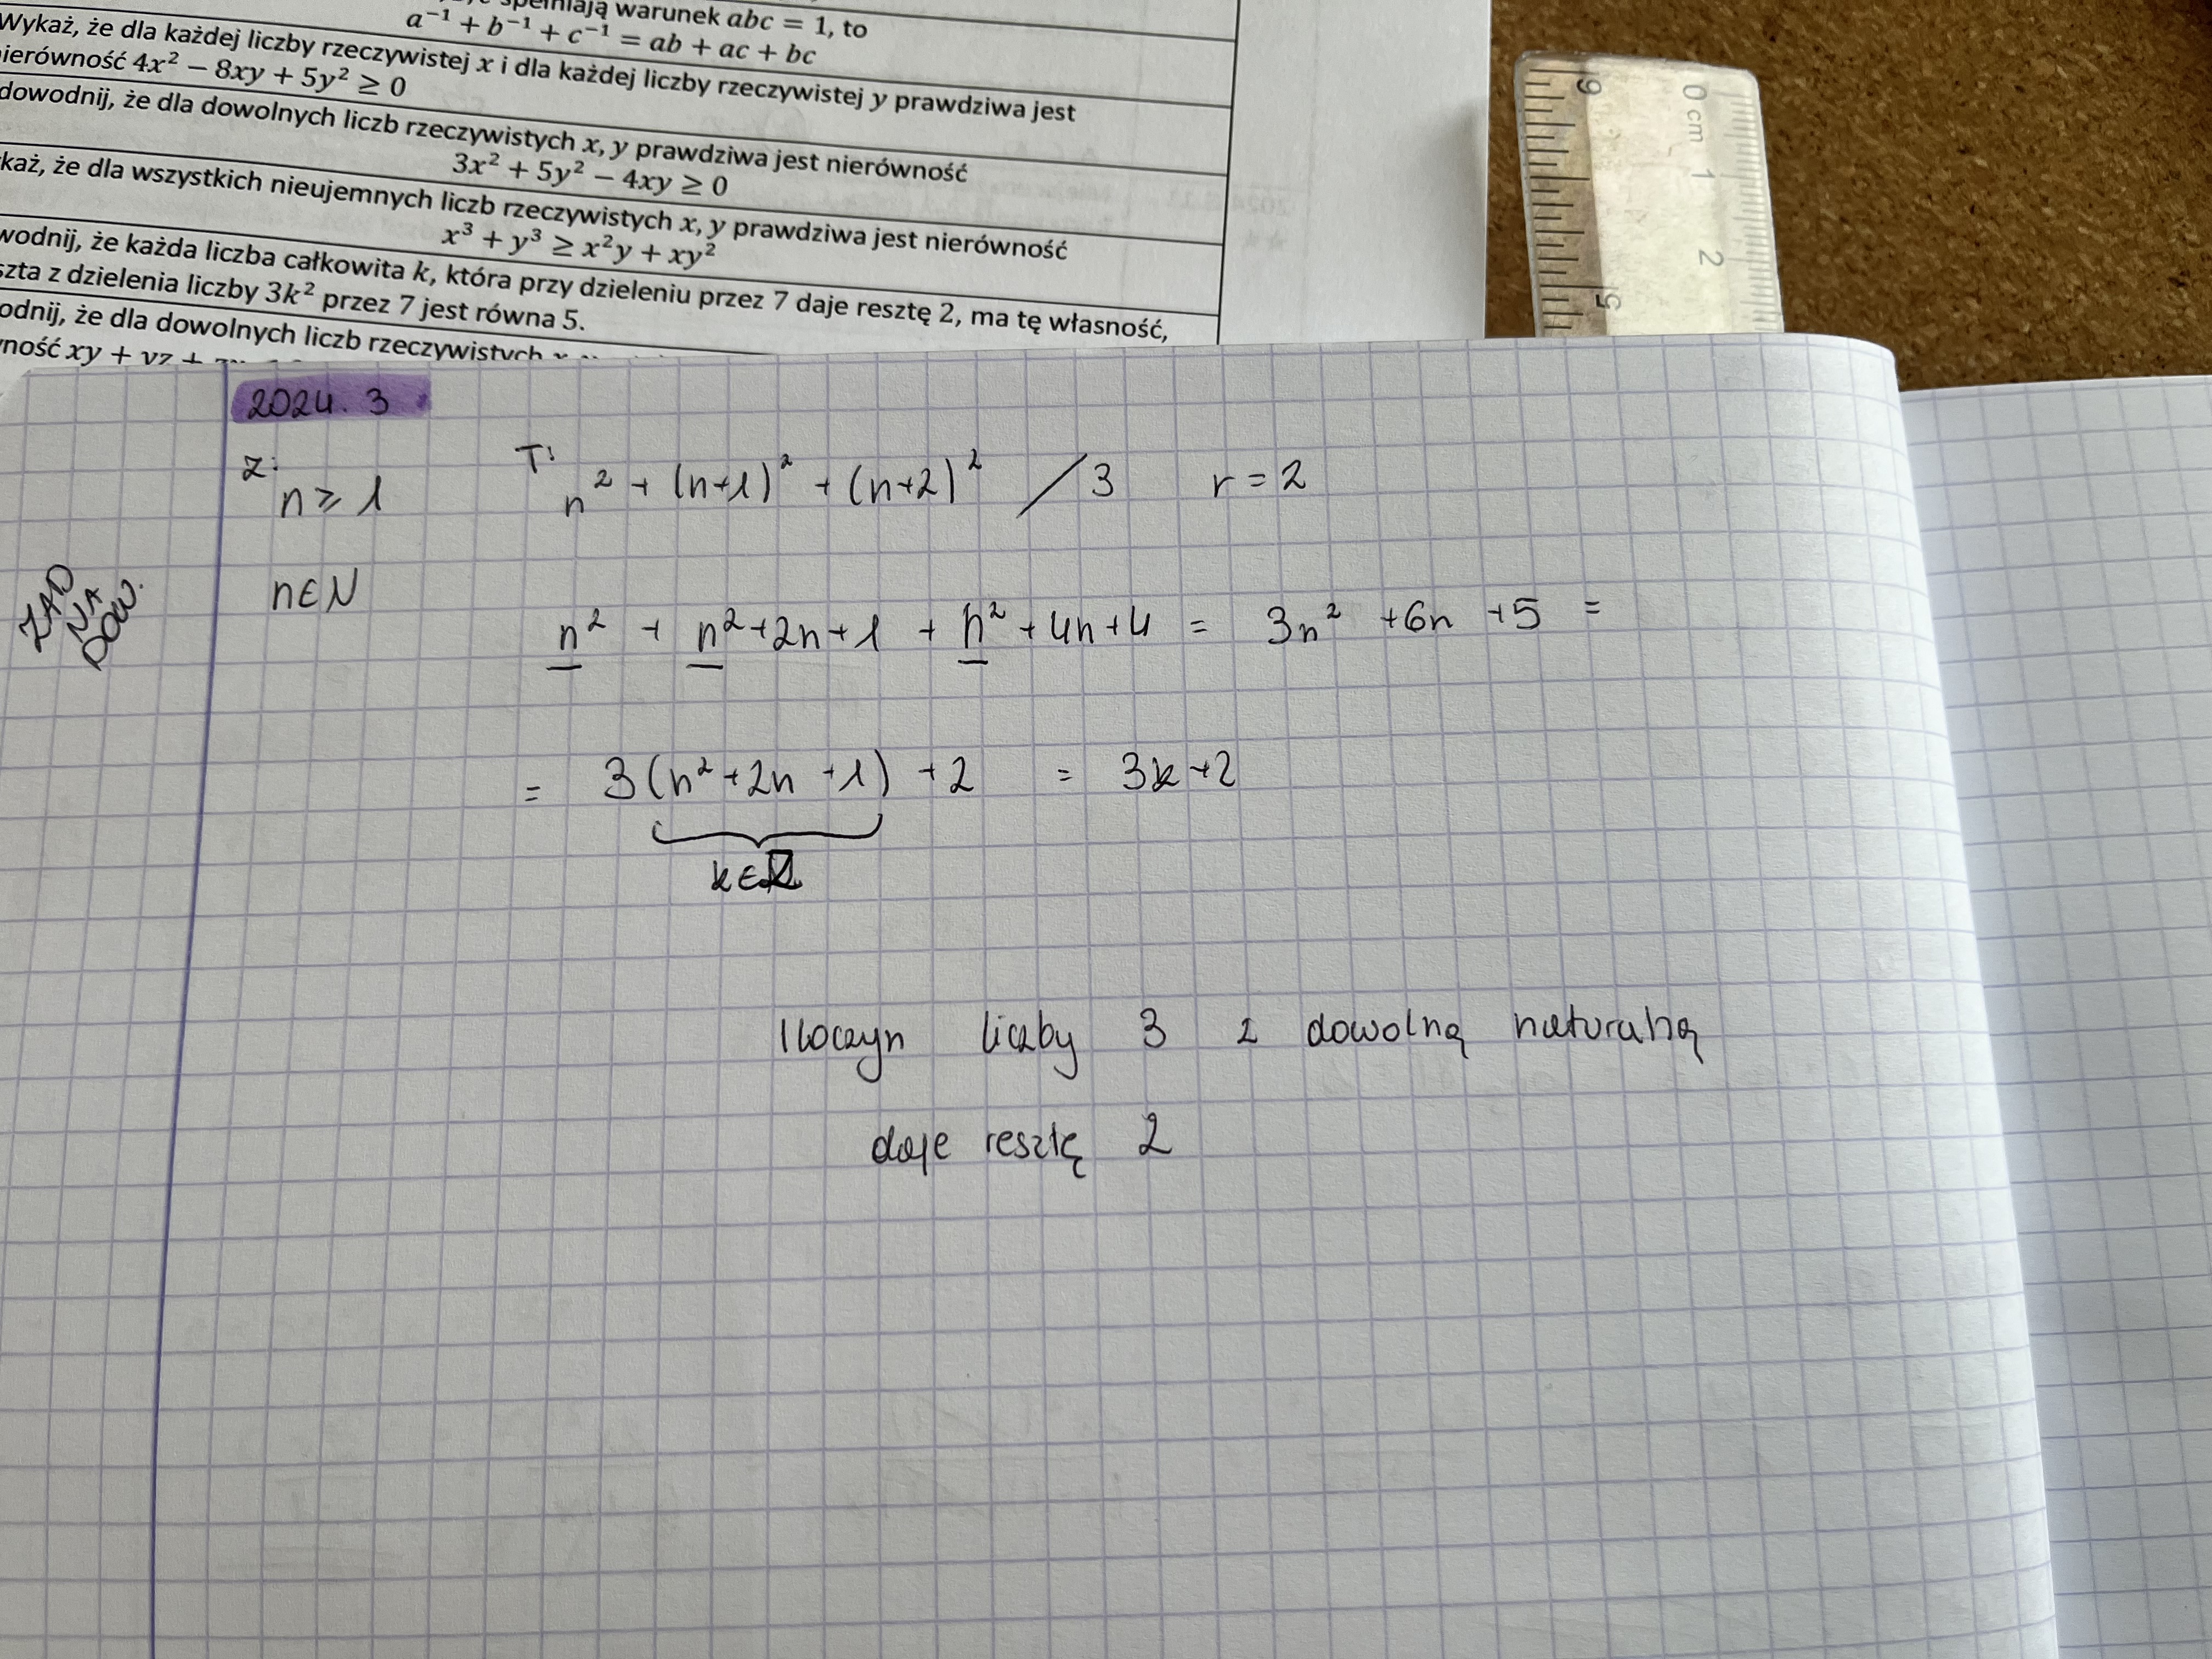 spełniają warunek abc = 1, to
a⁻¹ + b⁻¹ + c⁻¹ = ab + ac + bc
Wykaż, że dla każdej liczby rzeczywistej x i dla każdej liczby rzeczywistej y prawdziwa jest
nierówność 4x² − 8xy + 5y² ≥ 0
dowodnij, że dla dowolnych liczb rzeczywistych x, y prawdziwa jest nierówność
3x² + 5y² − 4xy ≥ 0
każ, że dla wszystkich nieujemnych liczb rzeczywistych x, y prawdziwa jest nierówność
x³ + y³ ≥ x²y + xy²
wodnij, że każda liczba całkowita k, która przy dzieleniu przez 7 daje resztę 2, ma tę własność,
szta z dzielenia liczby 3k² przez 7 jest równa 5.
odnij, że dla dowolnych liczb rzeczywistych x
ność xy + yz +
0 cm 1 2
6 5
2024. 3
Z: n ≥ 1
T: n² + (n+1)² + (n+2)² / 3 r = 2
ZAD NA DOW.
n∈N
n² + n²+2n+1 + n²+4n+4 = 3n² +6n +5 =
= 3(n²+2n+1) +2 = 3k+2
k∈
Iloczyn liczby 3 z dowolną naturalną
daje resztę 2